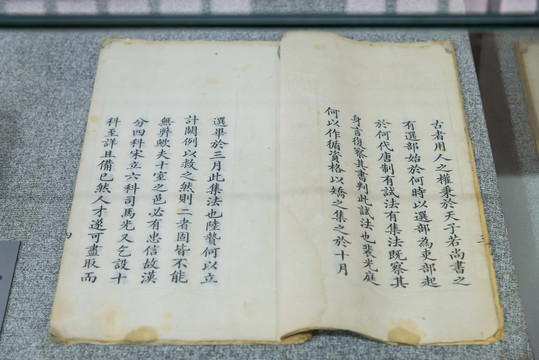 古者用人之權秉於天子若尚書之
有選部始於何時以選部為吏部起
於何代唐制有試法有集法既察其
身言復察其書判此試法也裴光庭
何以作循資格以矯之集之於十月
選畢於三月此集法也陸贄何以立
計闕例以救之然則二者固皆不能
無弊歟夫十室之邑必有忠信故漢
分四科宋立六科司馬光又乞設十
科至詳且備已然人才遂可盡取而